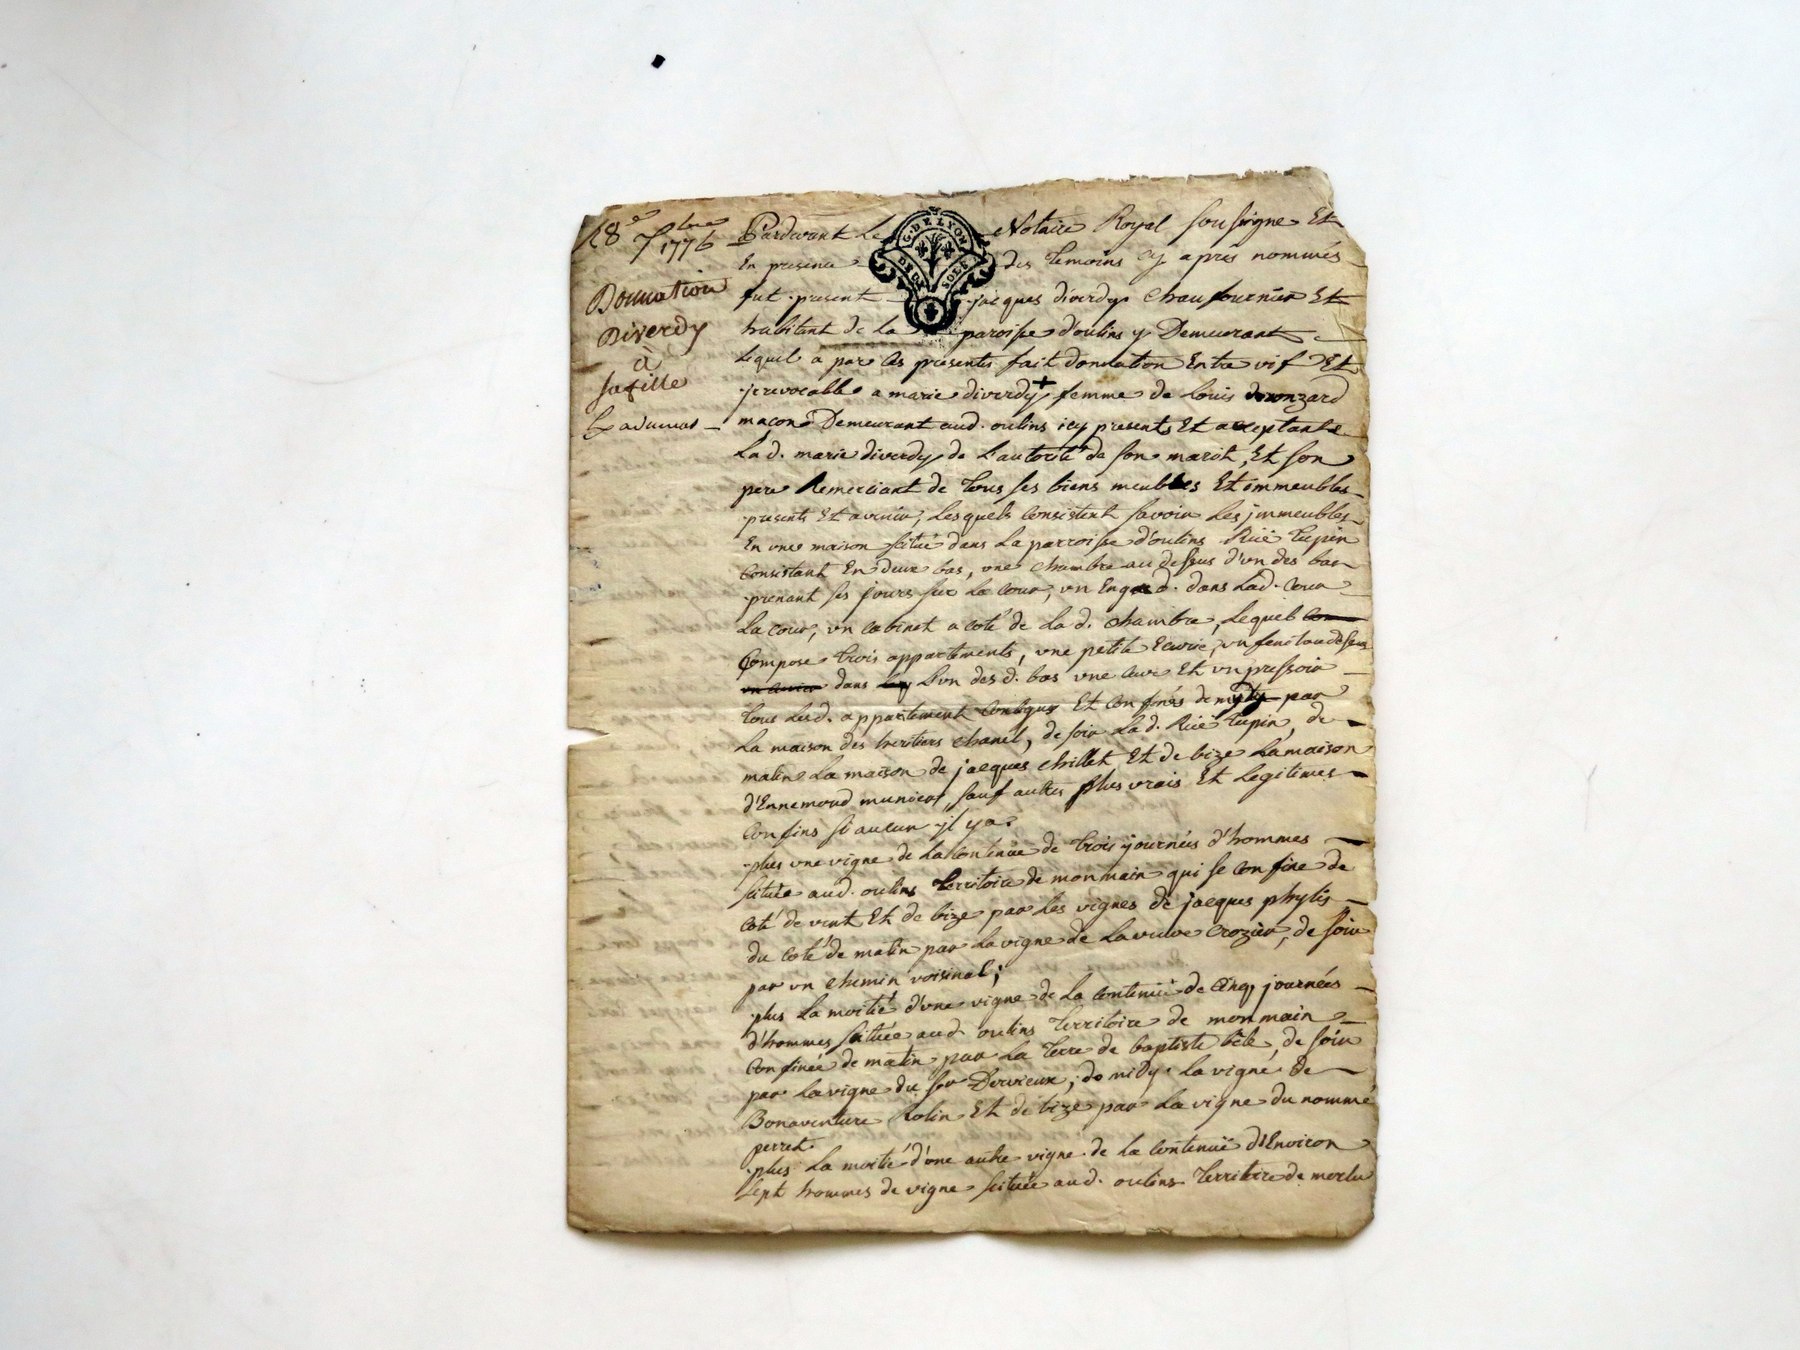 18e 7bre 1776
Donnation
Diverdy
à
sa fille
Pardevant Le Notaire Royal soussigne Et
En presence des temoins cy apres nommés
fut present jacques diverdy chaufournier Et
habitant de La paroisse d'oulins y Demeurant
Lequel a par les presentes fait donnation Entre vif Et
jrrevocable a marie diverdy + femme de Louis
macon Demeurant aud. oulins icy presents Et acceptante
La d. marie diverdy de L'autorité de son marit, Et son
pere Remerciant de tous ses biens meubles Et immeubles
presents Et avenir, Lesquels consistent savoir Les jmmeubles
En une maison scitué dans La parroisse d'oulins Rüe tupin
consistant En deux bas, une chambre au dessus d'un des bas
prenant ses jours sur La cour, un Engard. dans Lad. cour
La cour, un cabinet a coté de La d. chambre, Lequel
Compose trois appartements, une petite Ecurie, un fenil au dessus
dans L'un des d. bas une cuve Et un pressoir
tous Les d. appartement contigus Et confinés de midy par
La maison des heritiers chanel, de soir La d. Rüe tupin, de
matin La maison de jacques chillet Et de bize La maison
d'Ennemond munier, sauf autres plus vrais Et Legitimes
confins si aucun jl y a.
plus une vigne de La Contenüe de trois journées d'hommes
scituée aud. oulins territoire de monmain qui se confine de
coté de vent Et de bize par Les vignes de jacques phylis
du coté de matin par La vigne de La veuve crozier, de soir
par un chemin voisinal;
plus La moitié d'une vigne de La contenüe de cinq journées
d'hommes scituée aud. oulins territoire de monmain
confinée de matin par La terre de baptiste bête, de soir
par La vigne du sr Dervieux, de midy La vigne de
Bonaventure Rolin Et de bize par La vigne du nommé
perret.
plus La moitié d'une autre vigne de La contenüe d'Environ
sept hommes de vigne scituée aud. oulins territoire de merlu
G. DE LYON
DEUX SOLS